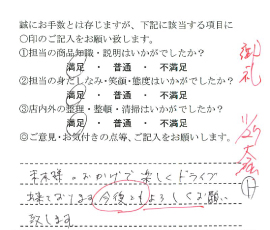 誠にお手数とは存じますが、下記に該当する項目に
〇印のご記入をお願い致します。
①担当の商品知識・説明はいかがでしたか?
満足 ・ 普通 ・ 不満足
②担当の身だしなみ・笑顔・態度はいかがでしたか?
満足 ・ 普通 ・ 不満足
③店内外の整理・整頓・清掃はいかがでしたか?
満足 ・ 普通 ・ 不満足
◎ご意見・お気付きの点等、ご記入をお願いします。
御礼
11/25
様のおかげで楽しくドライブ
今後ともよろしくお願い
致します